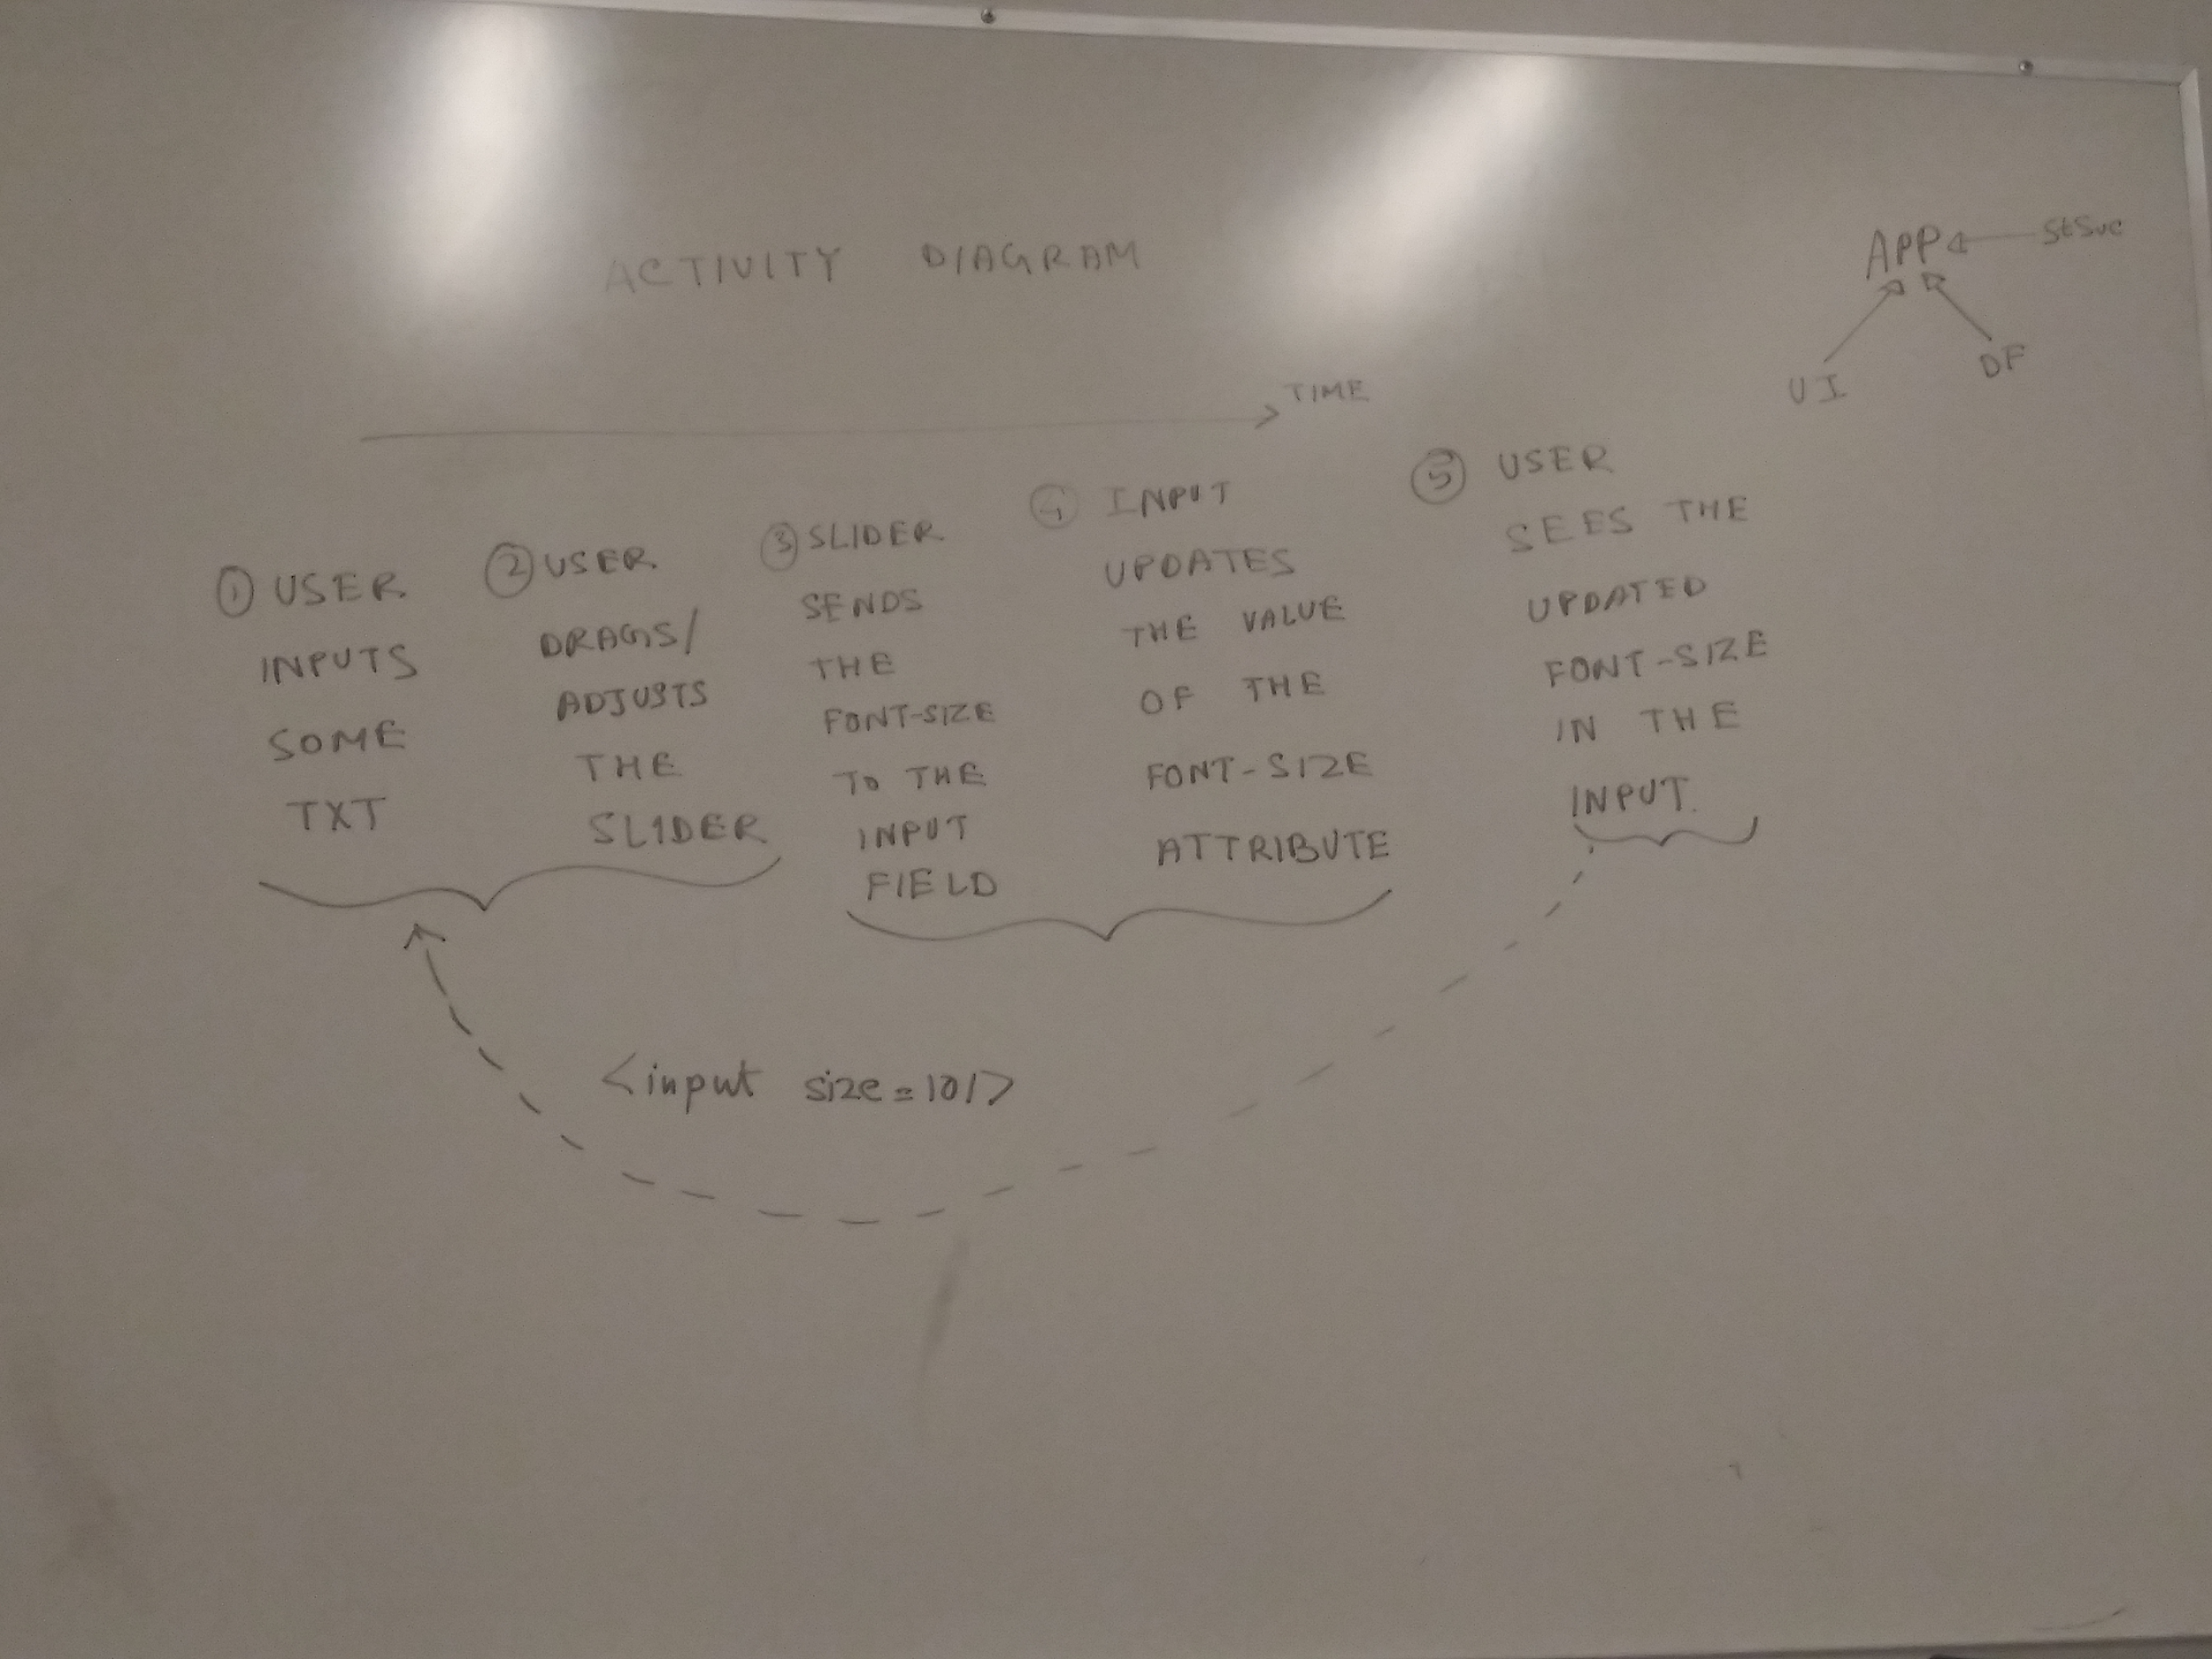 ACTIVITY DIAGRAM
APP StSvc
UI DF
TIME
① USER
INPUTS
SOME
TXT
② USER
DRAGS/
ADJUSTS
THE
SLIDER
③ SLIDER
SENDS
THE
FONT-SIZE
TO THE
INPUT
FIELD
④ INPUT
UPDATES
THE VALUE
OF THE
FONT-SIZE
ATTRIBUTE
⑤ USER
SEES THE
UPDATED
FONT-SIZE
IN THE
INPUT.
<input size=10/>